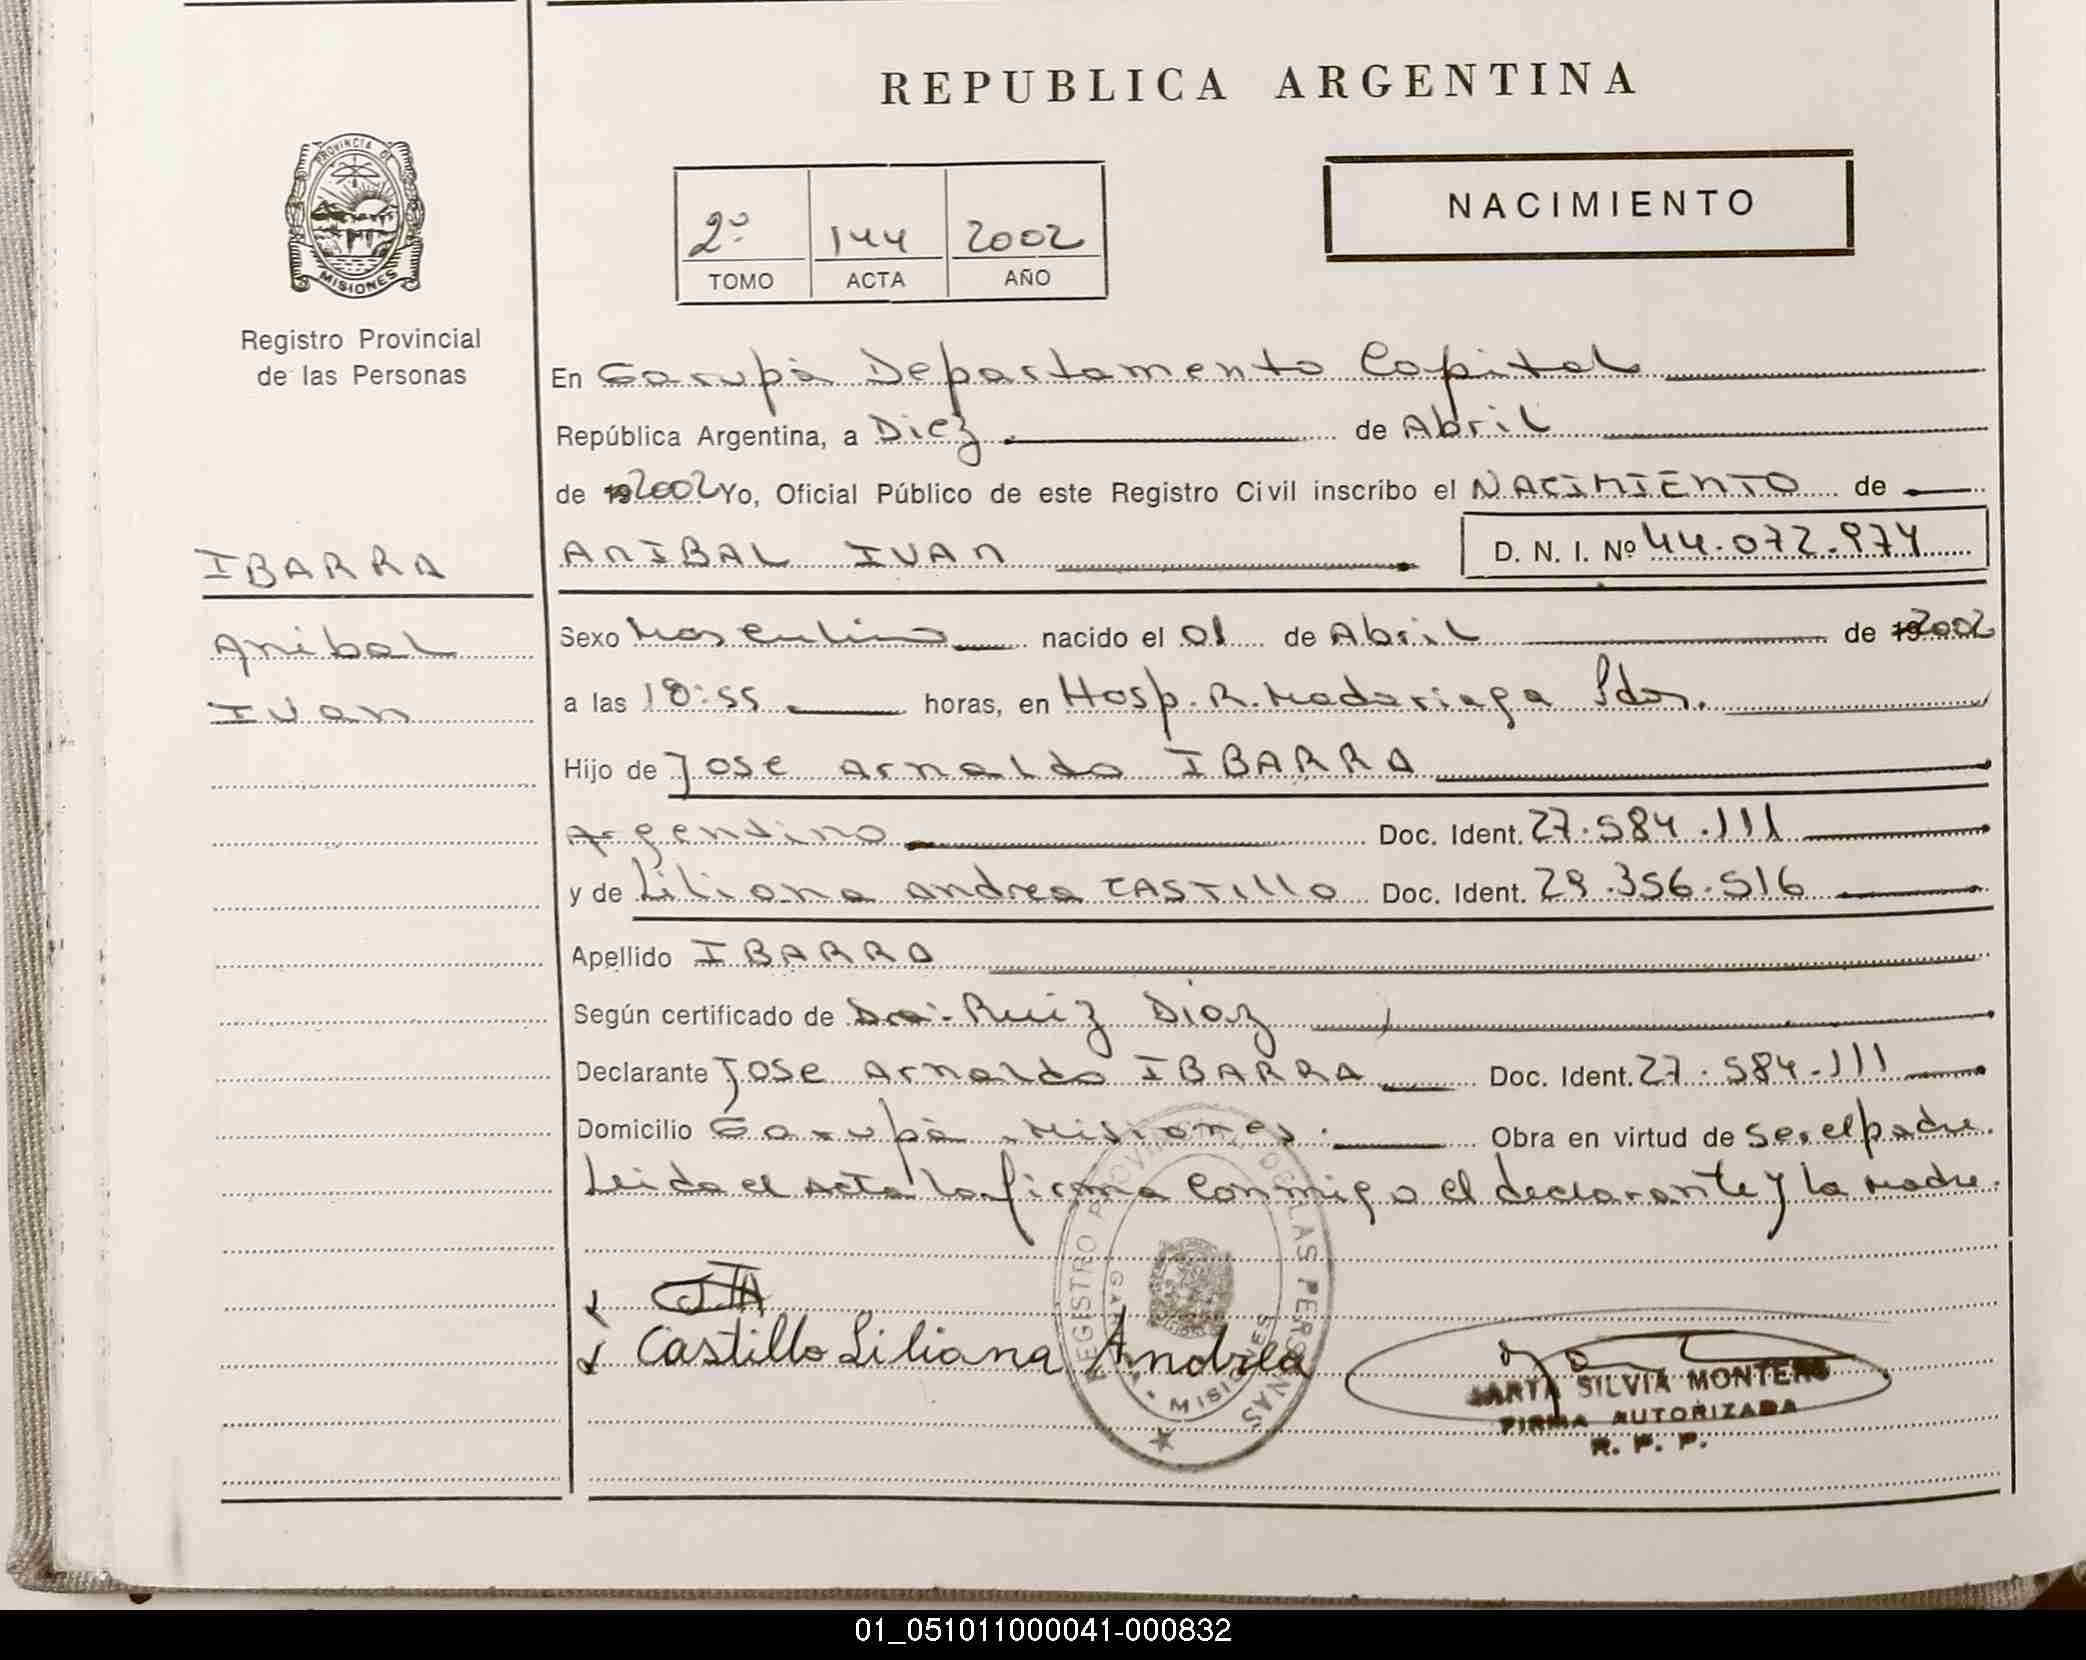 REPUBLICA ARGENTINA
PROVINCIA DE
MISIONES
Registro Provincial
de las Personas
NACIMIENTO
2º 144 2002
TOMO ACTA AÑO
En Garupá Departamento Capital
República Argentina, a Diez de Abril
de 192002 Yo, Oficial Público de este Registro Civil inscribo el NACIMIENTO de
IBARRA
ANIBAL IVAN D. N. I. Nº 44.072.974
Anibal
Sexo Masculino nacido el 01 de Abril de 192002
Ivan
a las 18:55 horas, en Hosp. R. Madariaga Pdas.
Hijo de Jose Arnaldo IBARRA
Argentino Doc. Ident. 27.584.111
y de Liliana Andrea CASTILLO Doc. Ident. 29.356.516
Apellido IBARRA
Según certificado de Dra. Ruiz Diaz
Declarante Jose Arnaldo IBARRA Doc. Ident. 27.584.111
Domicilio Garupá Misiones. Obra en virtud de ser el padre.
Leida el acta la firma conmigo el declarante y la madre.
REGISTRO PROVINCIAL DE LAS PERSONAS
MISIONES
Castillo Liliana Andrea
MARTA SILVIA MONTERO
FIRMA AUTORIZADA
R. P. P.
01_051011000041-000832